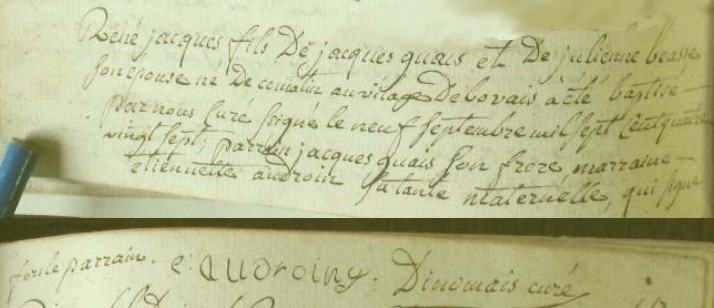 René jacques fils De jacques guais et De julienne beasse
son epouse né De ce matin au vilage De bovais a été baptisé
par nous Curé soigné le neuf septembre mil sept Cent quatre
vingt sept; parrain jacques guais son frere marraine
etiennette audroin sa tante maternelle, qui signe
fors le parrain. e: audroing. Dinomais curé